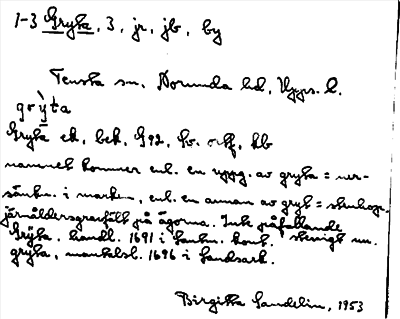 1-3 Gryta, 3, jr, jb, by
Tensta sn, Norunda hd, Upps. l.
grỳta
Gryta ek, bek. G92, kv. o. f, kb
namnet kommer enl. en uppg. av gryta = ner-
sänkn. i marken, enl. en annan av gryt = stenhop.
järnåldersgravfält på ägorna. Inte påfallande
Gryta, handl. 1691 i Lantm. kont. stenigt nu.
gryta, mantalsl. 1696 i Landsark.
Birgitta Sandelin, 1953